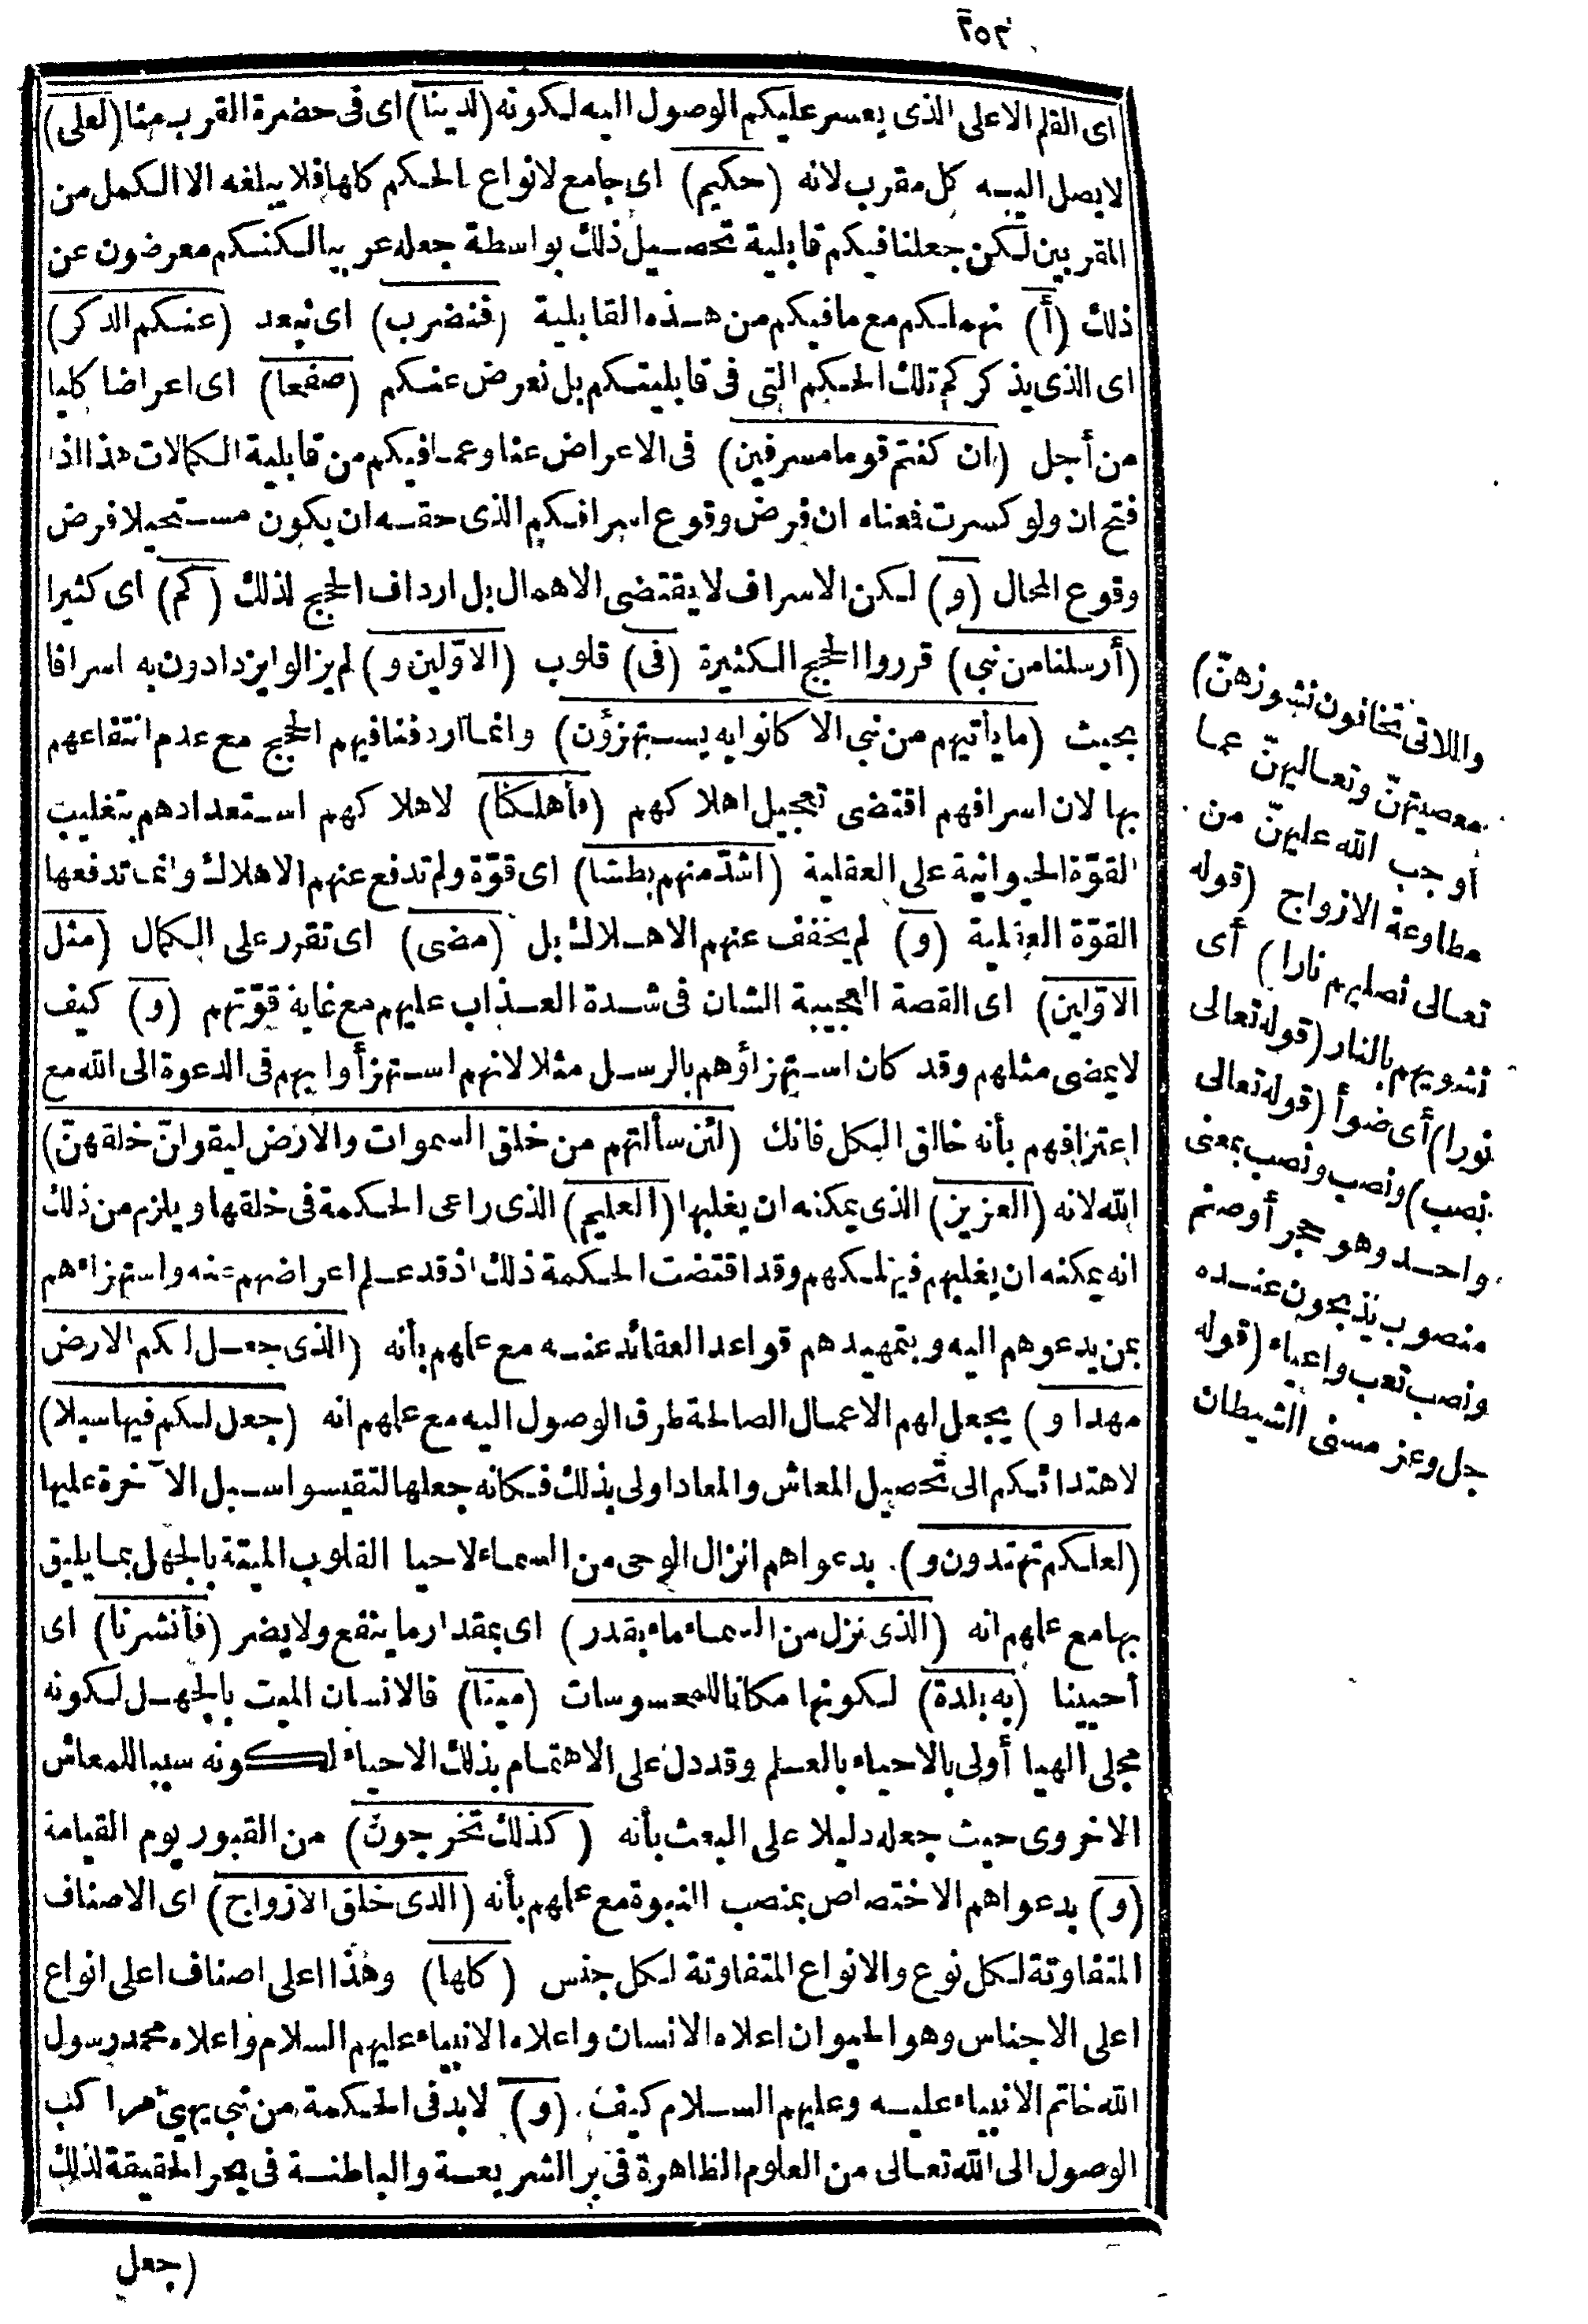 ٢٥٢
اى القلم الاعلى الذى يعسر عليكم الوصول اليه لكونه (لدينا) اى فى حضرة القرب منا (لعلى)
لا يصل اليه كل مقرب لانه (حكيم) اى جامع لانواع الحكم كلها فلا يبلغه الا الكمل من
المقربين لكن جعلنا فيكم قابلية تحصيل ذلك بواسطة جعله عربيا لكنكم معرضون عن
ذلك (أ) نهملكم مع ما فيكم من هذه القابلية (فنضرب) اى نبعد (عنكم الذكر)
اى الذى يذكركم تلك الحكم التى فى قابليتكم بل نعرض عنكم (صفحا) اى اعراضا كليا
من أجل (ان كنتم قوما مسرفين) فى الاعراض عنا وعما فيكم من قابلية الكمالات هذا اذا
فتح ان ولو كسرت فمعناه ان فرض وقوع اسرافكم الذى حقه ان يكون مستحيلا فرض
وقوع المحال (و) لكن الاسراف لا يقتضى الاهمال بل ارداف الحجج لذلك (كم) اى كثيرا
(أرسلنا من نبى) قرروا الحجج الكثيرة (فى) قلوب (الاوّلين و) لم يزالوا يزدادون به اسرافا
بحيث (ما يأتيهم من نبى الا كانوا به يستهزؤن) وانما اردفنا فيهم الحجج مع عدم انتفاعهم
بها لان اسرافهم اقتضى تعجيل اهلاكهم (فأهلكنا) لاهلاكهم استعدادهم بتغليب
القوّة الحيوانية على العقلية (اشدّ منهم بطشا) اى قوّة ولم تدفع عنهم الاهلاك وانما تدفعها
القوّة العقلية (و) لم يخفف عنهم الاهلاك بل (مضى) اى تقرر على الكمال (مثل
الاوّلين) اى القصة العجيبة الشان فى شدة العذاب عليهم مع غاية قوّتهم (و) كيف
لا يمضى مثلهم وقد كان استهزاؤهم بالرسل مثلا لانهم استهزأوا بهم فى الدعوة الى الله مع
اعترافهم بأنه خالق الكل فانك (لئن سألتهم من خلق السموات والارض ليقولنّ خلقهنّ)
الله لانه (العزيز) الذى يمكنه ان يغلبها (العليم) الذى راعى الحكمة فى خلقها ويلزم من ذلك
انه يمكنه ان يغلبهم فيهلكهم وقد اقتضت الحكمة ذلك اذ قد علم اعراضهم عنه واستهزاءهم
بمن يدعوهم اليه وبتمهيدهم قواعد العقائد عنه مع علمهم بأنه (الذى جعل لكم الارض
مهدا و) بجعل لهم الاعمال الصالحة طرق الوصول اليه مع علمهم انه (جعل لكم فيها سبلا)
لاهتدائكم الى تحصيل المعاش والمعاد اولى بذلك فكانه جعلها لتقيسوا سبل الآخرة عليها
(لعلكم تهتدون و). بدعواهم انزال الوحى من السماء لاحيا القلوب الميتة بالجهل بما يليق
بها مع علمهم انه (الذى نزل من السماء ماء بقدر) اى بمقدار ما ينفع ولا يضر (فأنشرنا) اى
أحيينا (به بلدة) لكونها مكانا للمحسوسات (ميتا) فالانسان الميت بالجهل لكونه
مجلى الهيا أولى بالاحياء بالعلم وقد دل على الاهتمام بذلك الاحياء لكونه سببا للمعاش
الاخروى حيث جعله دليلا على البعث بأنه (كذلك تخرجون) من القبور يوم القيامة
(و) بدعواهم الاختصاص بمنصب النبوة مع علمهم بأنه (الذى خلق الازواج) اى الاصناف
المتفاوتة لكل نوع والانواع المتفاوتة لكل جنس (كلها) وهذا اعلى اصناف اعلى انواع
اعلى الاجناس وهو الحيوان اعلاه الانسان واعلاه الانبياء عليهم السلام واعلاه محمد رسول
الله خاتم الانبياء عليه وعليهم السلام كيف. (و) لا بد فى الحكمة من نبى يهيئ مراكب
الوصول الى الله تعالى من العلوم الظاهرة فى بر الشريعة والباطنة فى بحر الحقيقة لذلك
(جعل
واللاتى تخافون نشوزهنّ)
معصيتهنّ وتعاليهنّ عما
أوجب الله عليهنّ من
مطاوعة الازواج (قوله
تعالى نصليهم نارا) أى
نشويهم بالنار (قوله تعالى
نورا) أى ضوأ (قوله تعالى
نصب) ونصب ونصب بمعنى
واحد وهو حجر أو صنم
منصوب يذبحون عنده
ونصب تعب واعياء (قوله
جل وعز مسنى الشيطان